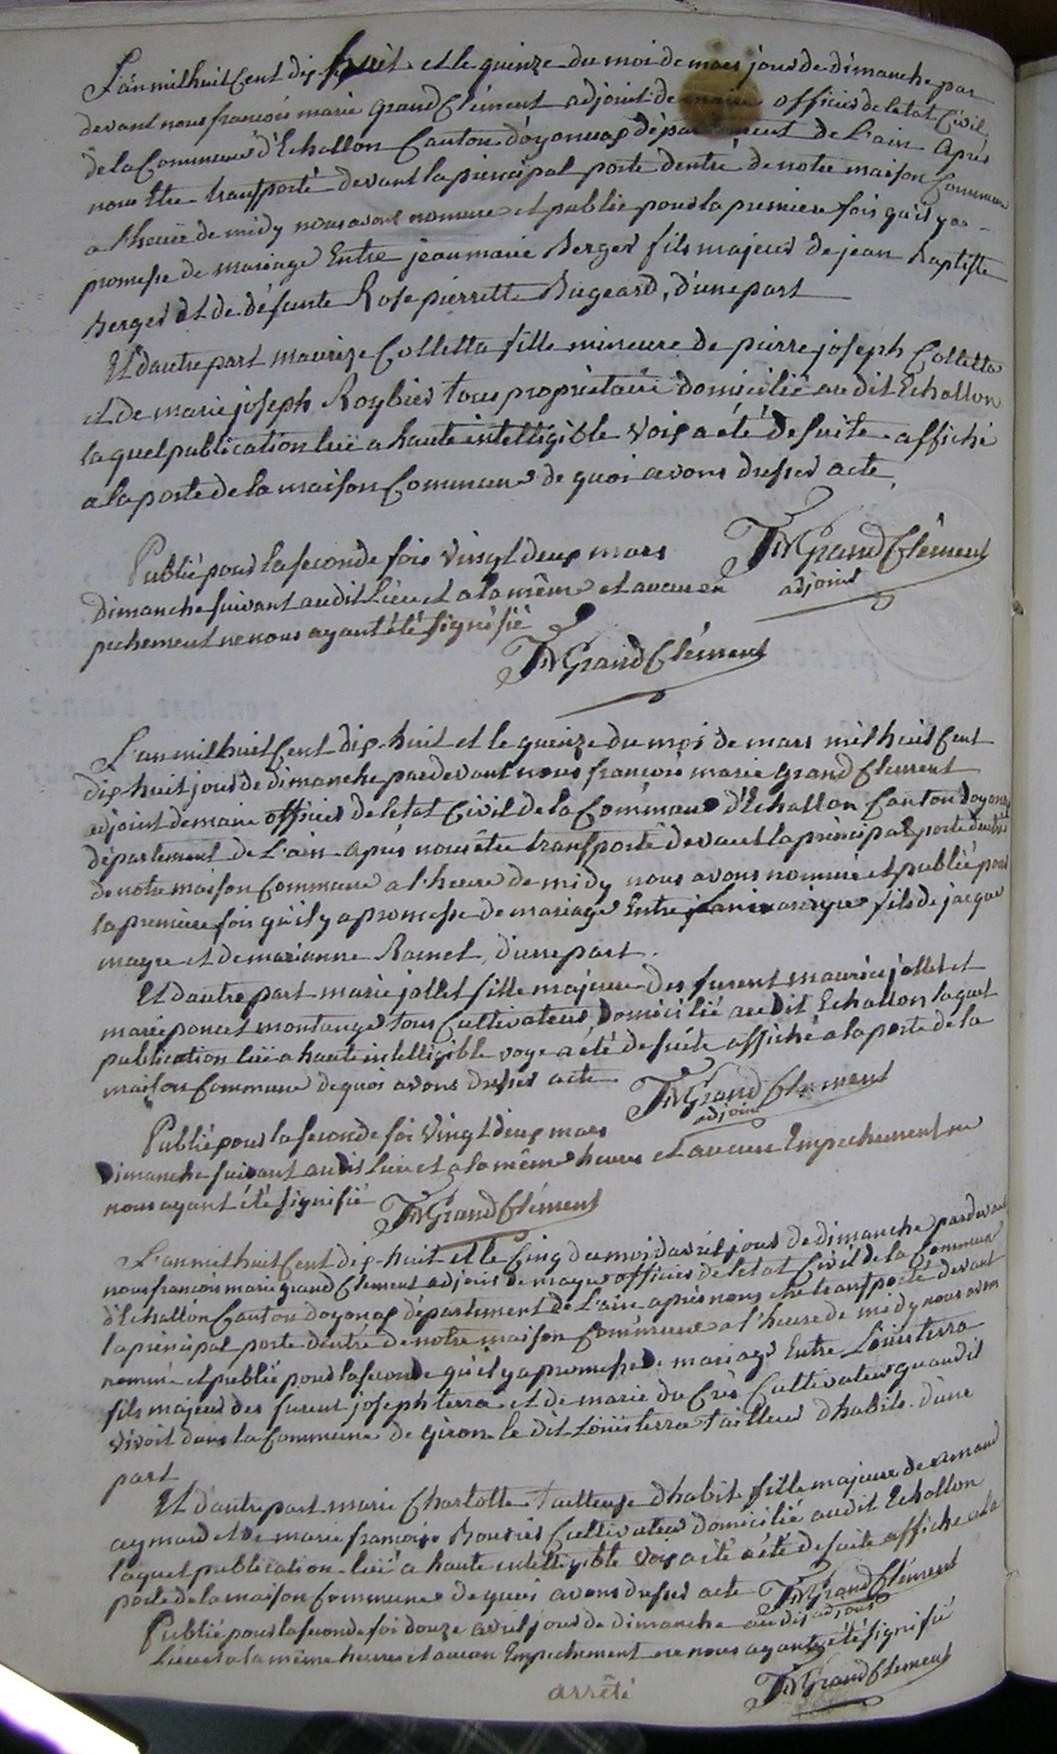 L'an mil huit Cent dix-huit et le quinze du moi de mars jour de dimanche par
devant nous françois marie grand Clément adjoint de maire officier de l'etat Civil
de la Commune d'Echallon Canton d'oyonnax département de L'ain Après
nous être transporté devant la principal porte dentré de notre maison Commune
a l'heure de midy nous avons nommé et publié pour la premiere fois qu'il y a
promesse de mariage Entre jean marie Berger fils majeur de jean Baptiste
Berger et de défunte Rose pierrette Bugeard, d'une part
Et dautre part Colletta fille mineure de pierre joseph Colletta
et de marie joseph Roybier tous propriétaire domicilié au dit Echallon
laquel publication luë a haute intelligible voix a été de suite affiché
a la porte de la maison Commune de quoi avons dresser acte
Publié pour la seconde fois vingt deux mars
Dimanche suivant audit Lieu et a la même et aucun en
pechement ne nous ayant été signifié
GrandClément
adjoint
GrandClément
L'an mil huit Cent dix-huit et le quinze du moi de mars mil huit Cent
dix-huit jour de dimanche par devant nous françois marie grand Clement
adjoint de maire officier de letat Civil de la Commune d'Echallon Canton doyonnax
département de L'ain Après nous être transporté devant la principal porte dentré
de notre maison Commune a l'heure de midy nous avons nommé et publié pour
la premiere fois qu'il y a promesse de mariage Entre fils de jacque
mayre et de marianne Ramel, d'une part.
Et dautre part marie jollet fille majeure des furent maurice jollet et
marie poncet montange tous Cultivateur Domicilié au dit Echallon laquel
publication luë a haute intelligible voye a été de suite affiché a la porte de la
maison Commune de quoi avons dresser acte
GrandClement
adjoint
Publié pour la seconde foi vingt deux mars
Dimanche suivant audit Lieu et a la même heure et aucun Empechement ne
nous ayant été signifié
GrandClément
L'an mil huit Cent dix-huit et le Cinq du moi d'avril jour de dimanche par devant
nous françois marie grand Clement adjoint de mayre officier de letat Civil de la Commune
d'Echallon Canton doyonax département de L'ain après nous etre transporté devant
la principal porte dentré de notre maison Commune a l'heure de midy nous avons
nommé et publié pour la seconde qu'il y a promesse de mariage Entre Louis terra
fils majeur des furent joseph terra et de marie du Crès Cultivateur quand il
vivoit dans la Commune de giron le dit Louis terra tailleur d'habits d'une
part
Et d'autre part marie Charlotte tailleuse d'habit fille majeure de
aymard et de marie françoise Cultivateur domicilié audit Echallon
laquel publication luë a haute intelligible voix a été a été de suite affiché a la
porte de la maison Commune de quoi avons dresser acte
GrandClément
adjoint
Publié pour la seconde foi douze avril jour de dimanche au dit
Lieu et a la même heure et aucun Empechement ne nous ayant été signifié
GrandClement
arrêté